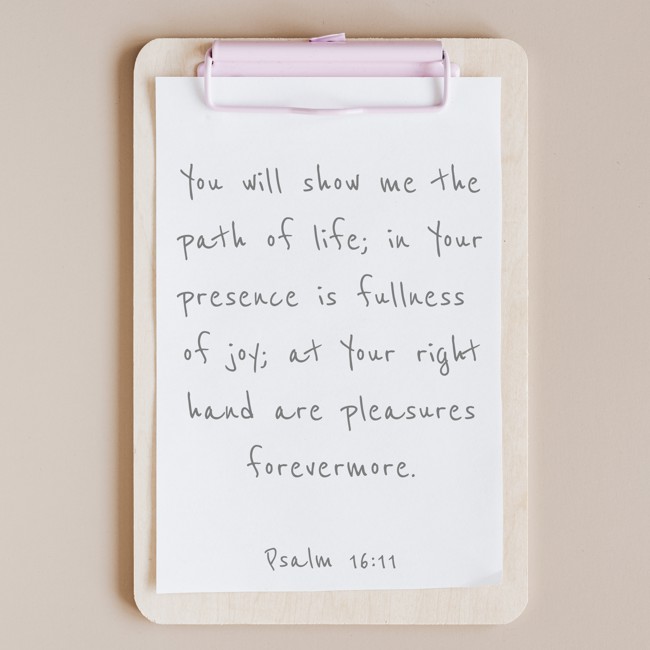 You will show me the
path of life; in Your
presence is fullness
of joy; at Your right
hand are pleasures
forevermore.
Psalm 16:11